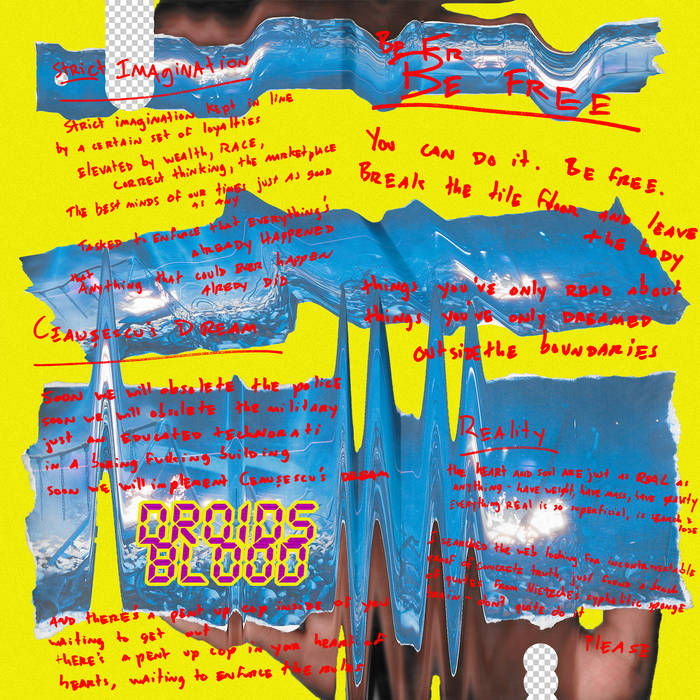 Strict IMAgiNATiON
Strict imagination kept in line
by a certain set of loyalties
Elevated by wealth, RACE,
correct thinking, the marketplace
The best minds of our times just as good
as any
Tasked to enforce that everything's
already HAPPENED
that
Anything that could ever happen
already did
Ceauşescu's DREAM
Soon we will obsolete the police
soon we will obsolete the military
just an EDUCATED techNORATi
in a boring fucking building
soon we will implement Ceauşescu's DREAM
DROIDS
BLOOD
AND thERE's a pent up cop inside of you
waiting to get out
there's a pent up cop in your heart of
hearts, waiting to enforce the rules
BE FR
BE FREE
You CAN DO it. BE FREE.
BREAK the tile floor AND leAVE
the body
things you've only READ about
things you've only DREAMED
outside the boundaries
Reality
the HEART AND soul ARE just as REAL as
anything - have weight, have mass, have gravity
Everything REAL is so superficial, is
lose
I searched the web looking for incontrovertible
proof of concrete truth, just found a bunch
of quotes from Nietzche's syphilitic sponge
brain - don't quite do it
PlEASE